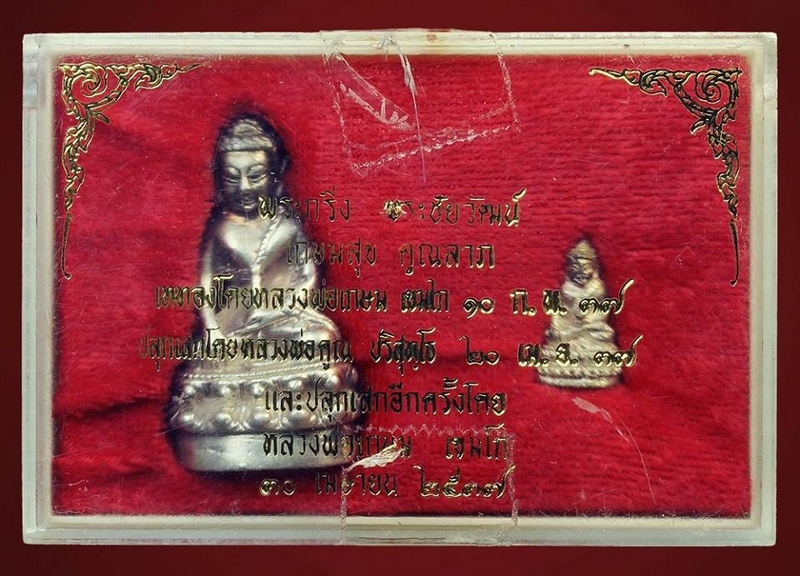 พระกริ่ง พระชัยวัฒน์
เกษมสุข คูณลาภ
เททองโดยหลวงพ่อเกษม เขมโก ๑๐ ก.พ. ๓๗
ปลุกเสกโดยหลวงพ่อคูณ ปริสุทฺโธ ๒๐ เม.ย. ๓๗
และปลุกเสกอีกครั้งโดย
หลวงพ่อเกษม เขมโก
๓๐ เมษายน ๒๕๓๗